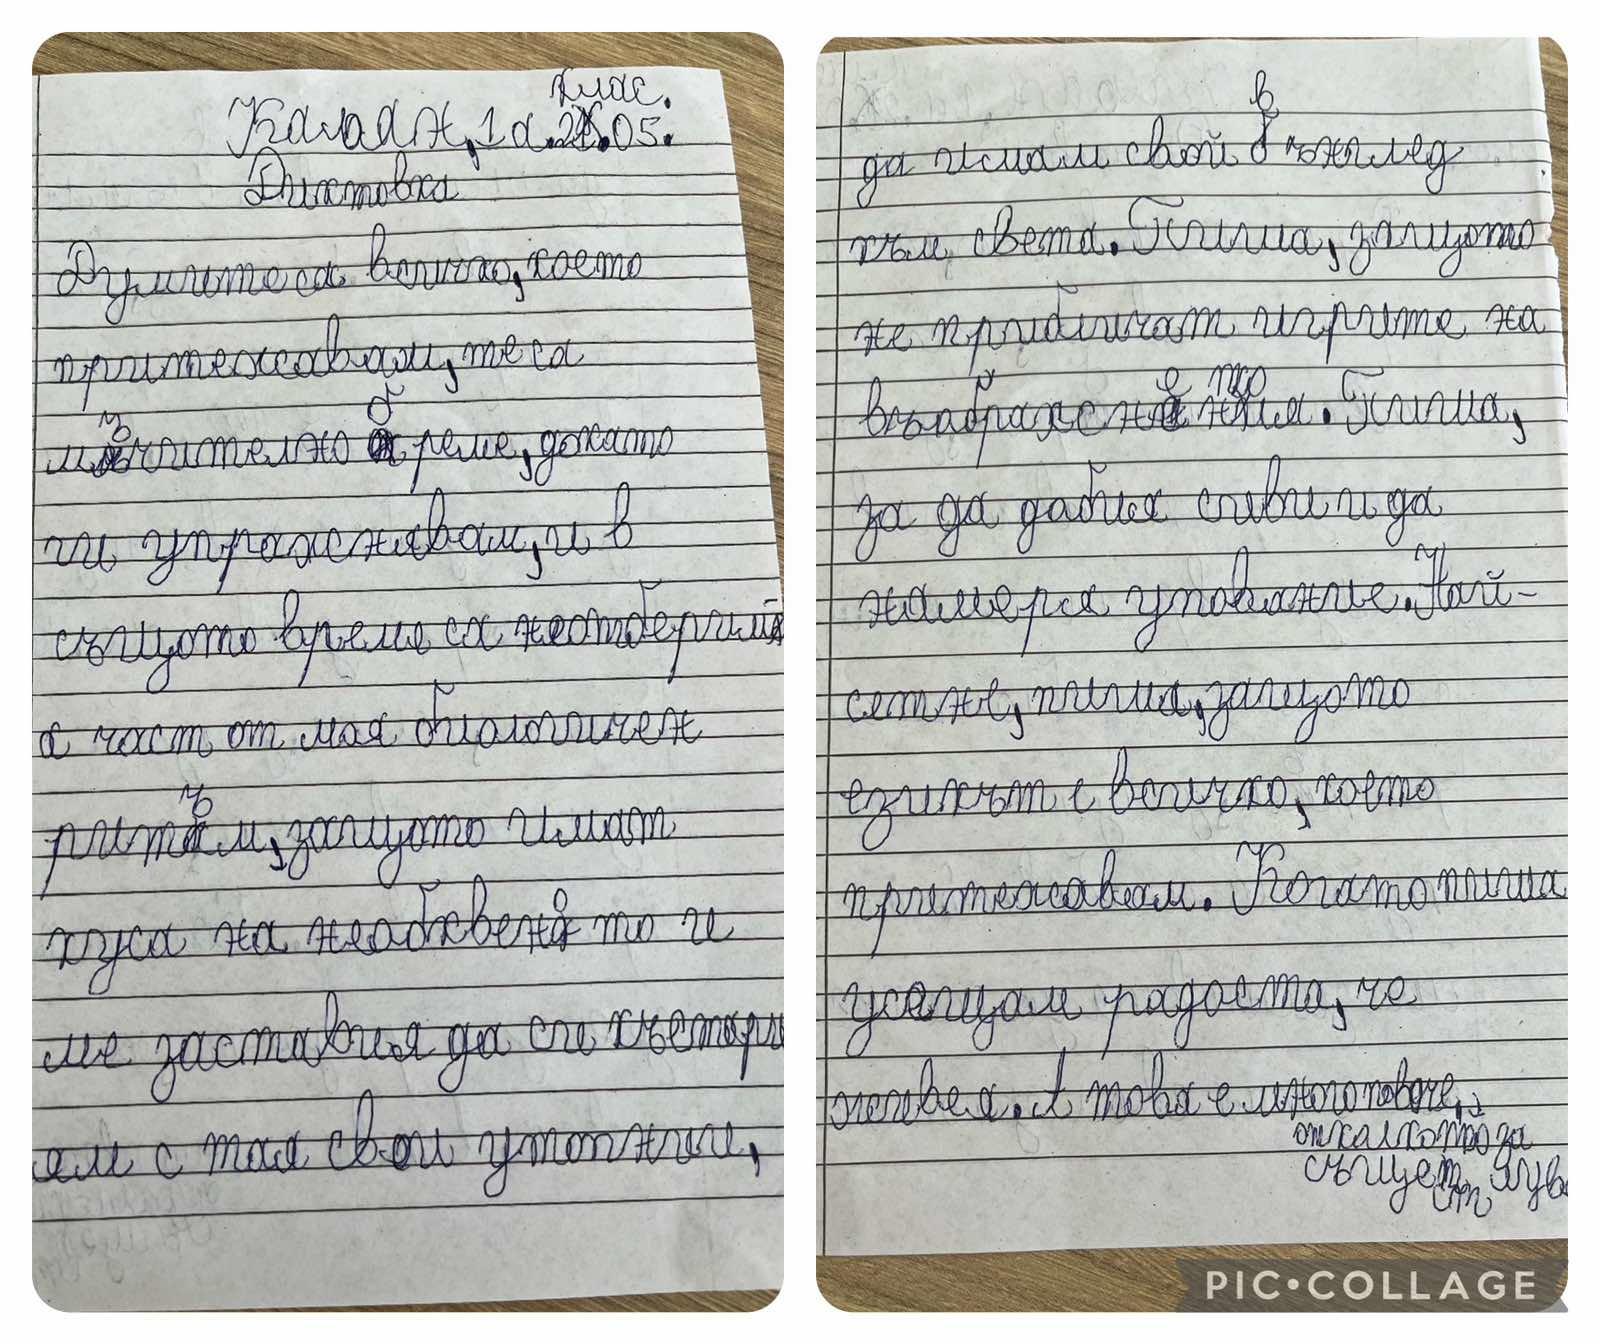 Калоян, 1 а клас. 28.05.
Диктовка
Думите са всичко, което
притежавам, те са
мъчително бреме, докато
ги упражнявам, и в
същото време са неотберима
я част от моя биологичен
ритъм, защото имат
вкуса на необквенато и
ме заставя да си кхетори
ям с тая свои утопнии,
да имам свой въгллед
към света. Пиша, защото
не придиичат игрите на
въабражението. Пиша,
за да дабия сиви и да
намеря упование. Най-
сетне, пиша, защото
езикът е всичко, което
притежавам. Когато пиша
усещам радоста, че
живея. А това е много повече,
отколкото за
същест
ву